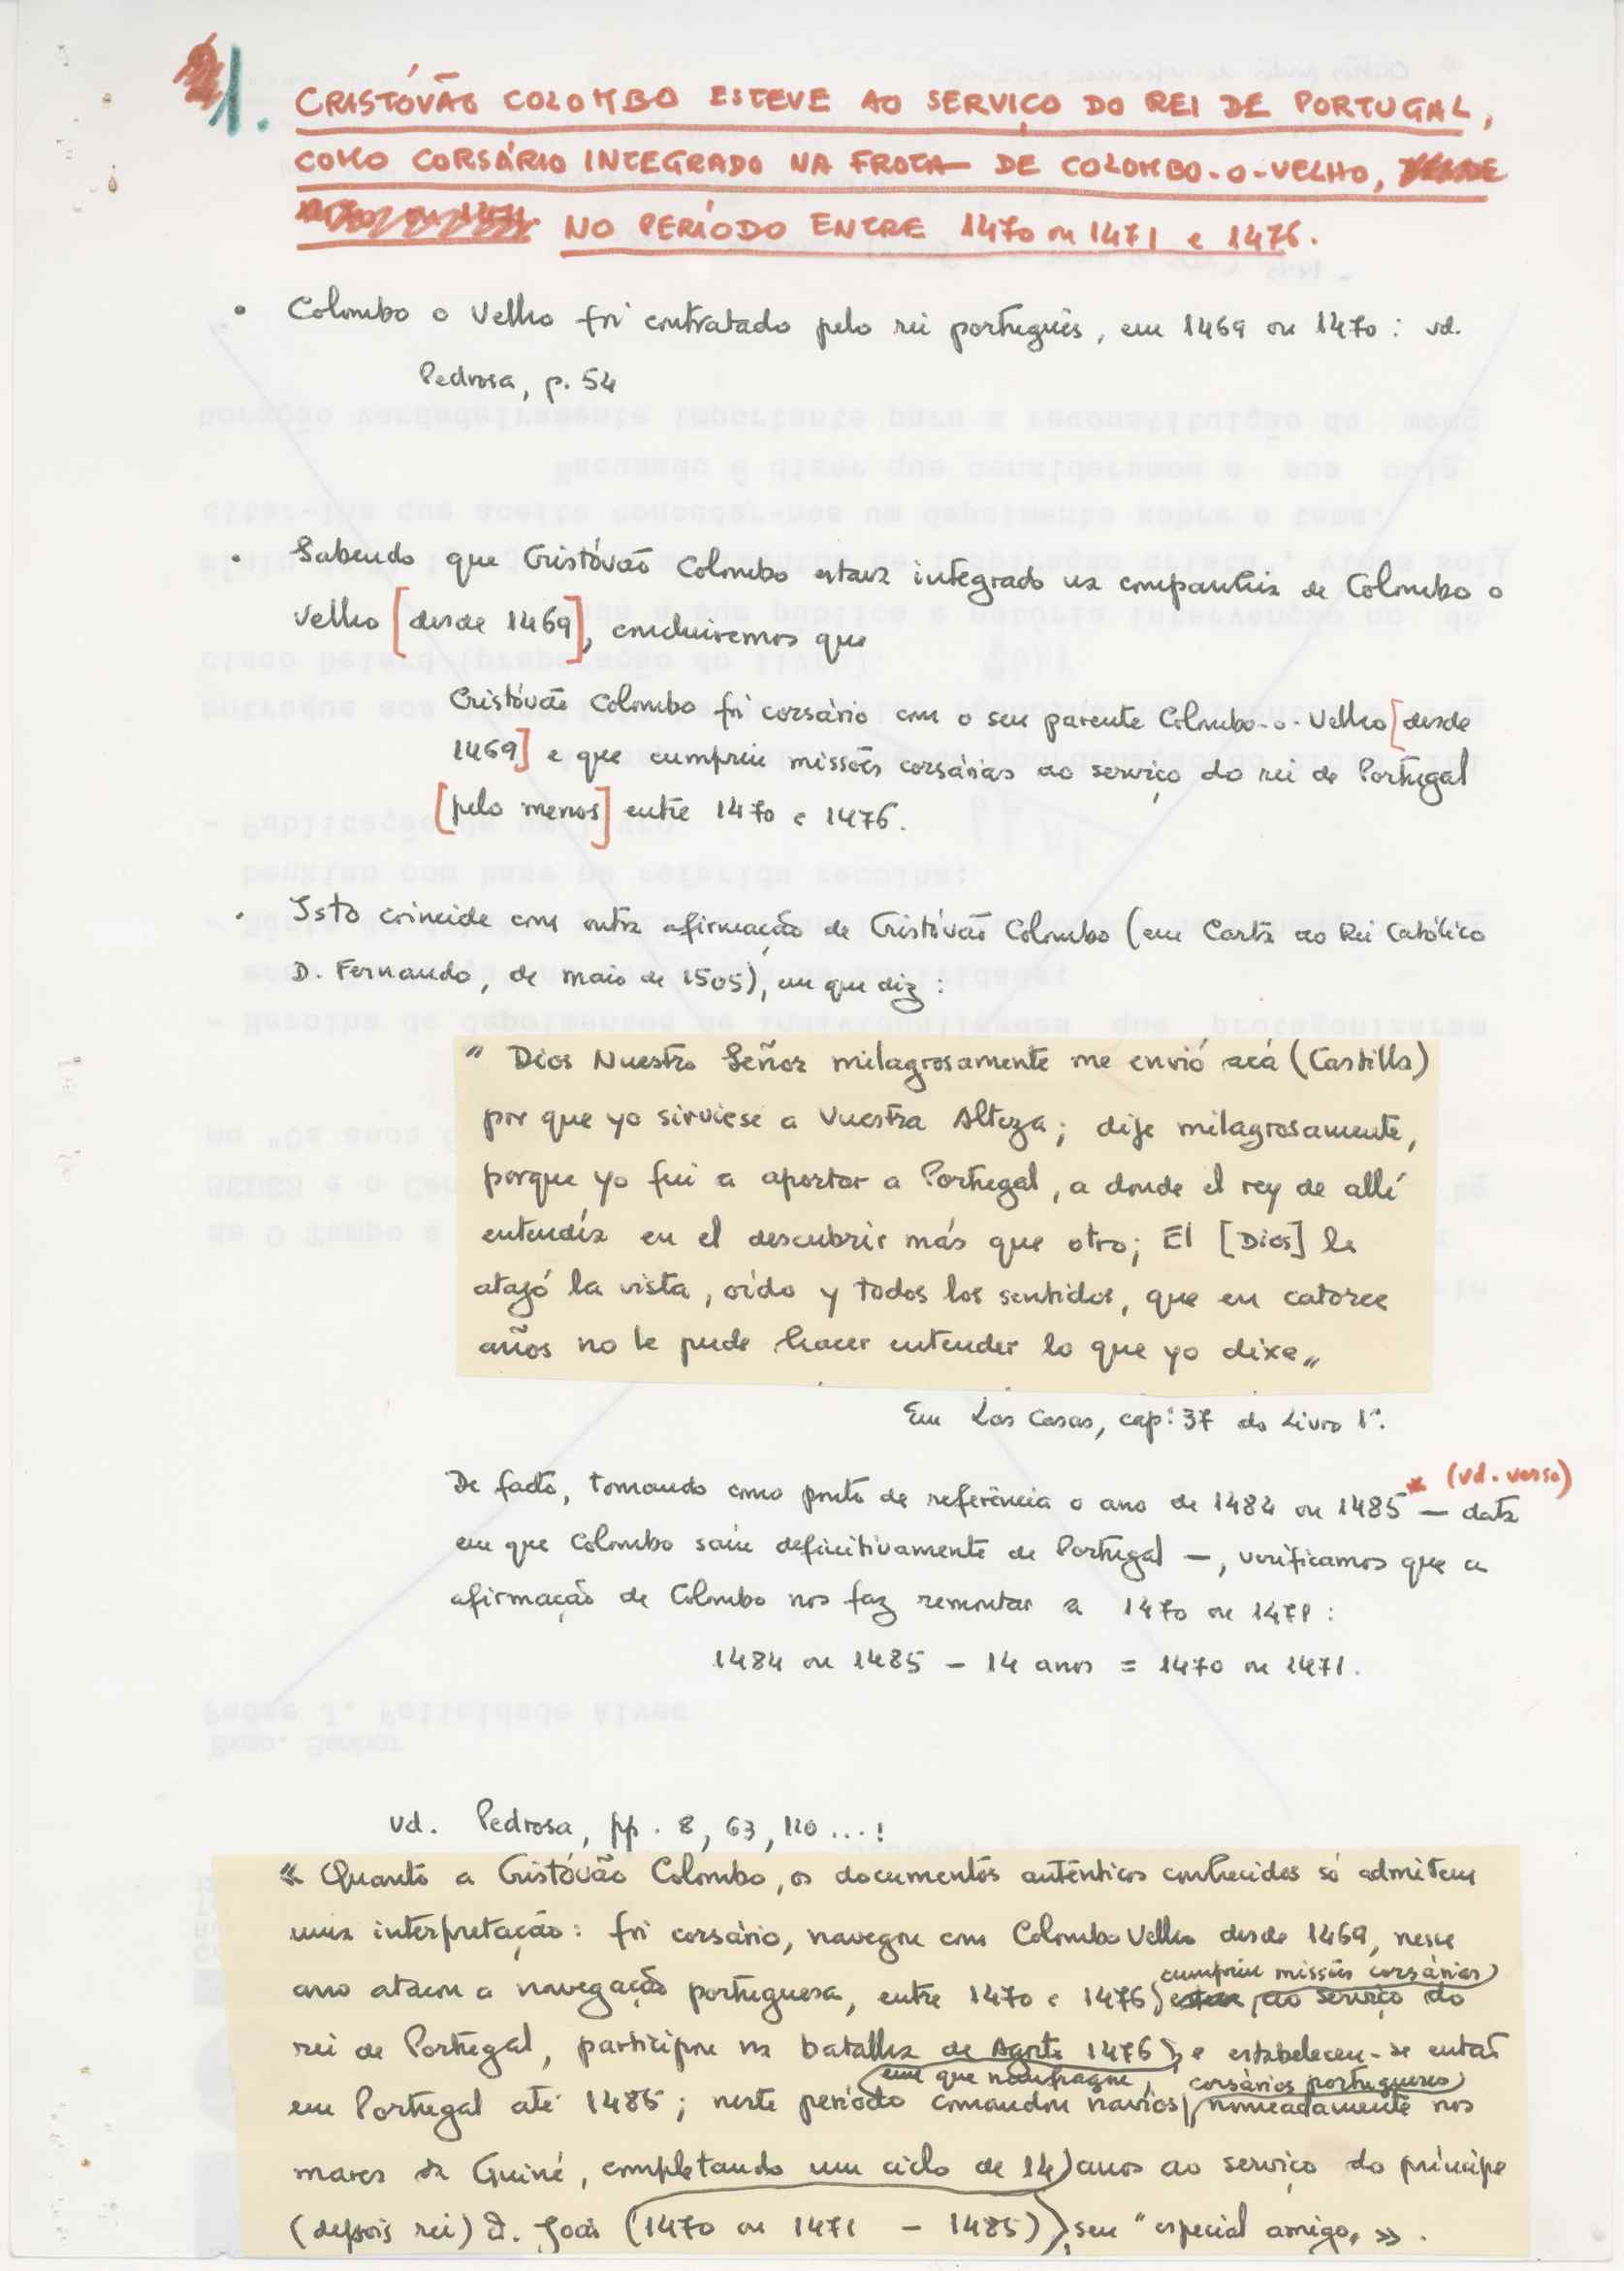 1. CRISTÓVÃO COLOMBO ESTEVE AO SERVIÇO DO REI DE PORTUGAL,
COMO CORSÁRIO INTEGRADO NA FROTA DE COLOMBO-O-VELHO,
NO PERÍODO ENTRE 1470 ou 1471 e 1476.
• Colombo o Velho foi contratado pelo rei português, em 1469 ou 1470: vd.
Pedrosa, p. 54
• Sabendo que Cristóvão Colombo estava integrado na companhia de Colombo o
Velho [desde 1469], concluiremos que
Cristóvão Colombo foi corsário com o seu parente Colombo-o-Velho [desde
1469] e que cumpriu missões corsárias ao serviço do rei de Portugal
[pelo menos] entre 1470 e 1476.
• Isto coincide com outra afirmação de Cristóvão Colombo (em Carta ao Rei Católico
D. Fernando, de maio de 1505), em que diz:
" Dios Nuestro Señor milagrosamente me envió acá (Castilla)
por que yo sirviese a Vuestra Alteza; dije milagrosamente,
porque yo fui a aportar a Portugal, a donde el rey de allí
entendía en el descubrir más que otro; El [Dios] le
atajó la vista, oído y todos los sentidos, que en catorce
años no le pude hacer entender lo que yo dixe"
Em Las Casas, cap: 37 do Livro 1º.
De facto, tomando como ponto de referência o ano de 1484 ou 1485 * (vd. verso) — data
em que Colombo saiu definitivamente de Portugal —, verificamos que a
afirmação de Colombo nos faz remontar a 1470 ou 1471:
1484 ou 1485 – 14 anos = 1470 ou 1471.
vd. Pedrosa, pp. 8, 63, 110 ...!
« Quanto a Cristóvão Colombo, os documentos autênticos conhecidos só admitem
uma interpretação: foi corsário, navegou com Colombo Velho desde 1469, nesse
ano atacou a navegação portuguesa, entre 1470 e 1476) cumpriu missões corsárias) ao serviço do
rei de Portugal, participou na batalha de Agosto 1476), e estabeleceu-se então
em que naufragou, corsários portugueses)
em Portugal até 1485; neste período comandou navios, nomeadamente nos
mares da Guiné, completando um ciclo de 14) anos ao serviço do príncipe
(depois rei) D. João (1470 ou 1471 – 1485)), seu "especial amigo" ».